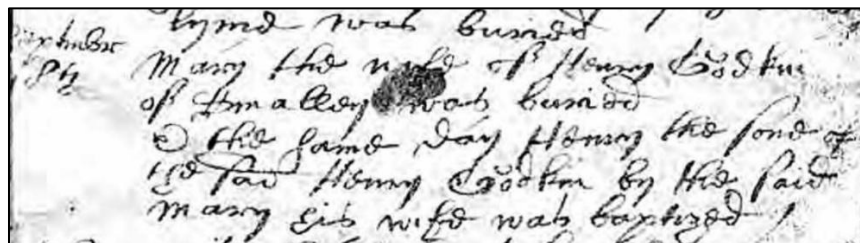 lyme was buried
September
8th
Mary the wife of Henry Godkin
of Smalley was buried
& the same day Henry the sone of
the said Henry Godkin by the said
Mary his wife was baptized